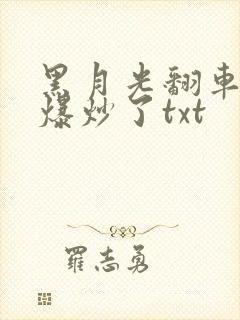 黑月光翻車
爆炒了txt
羅志勇